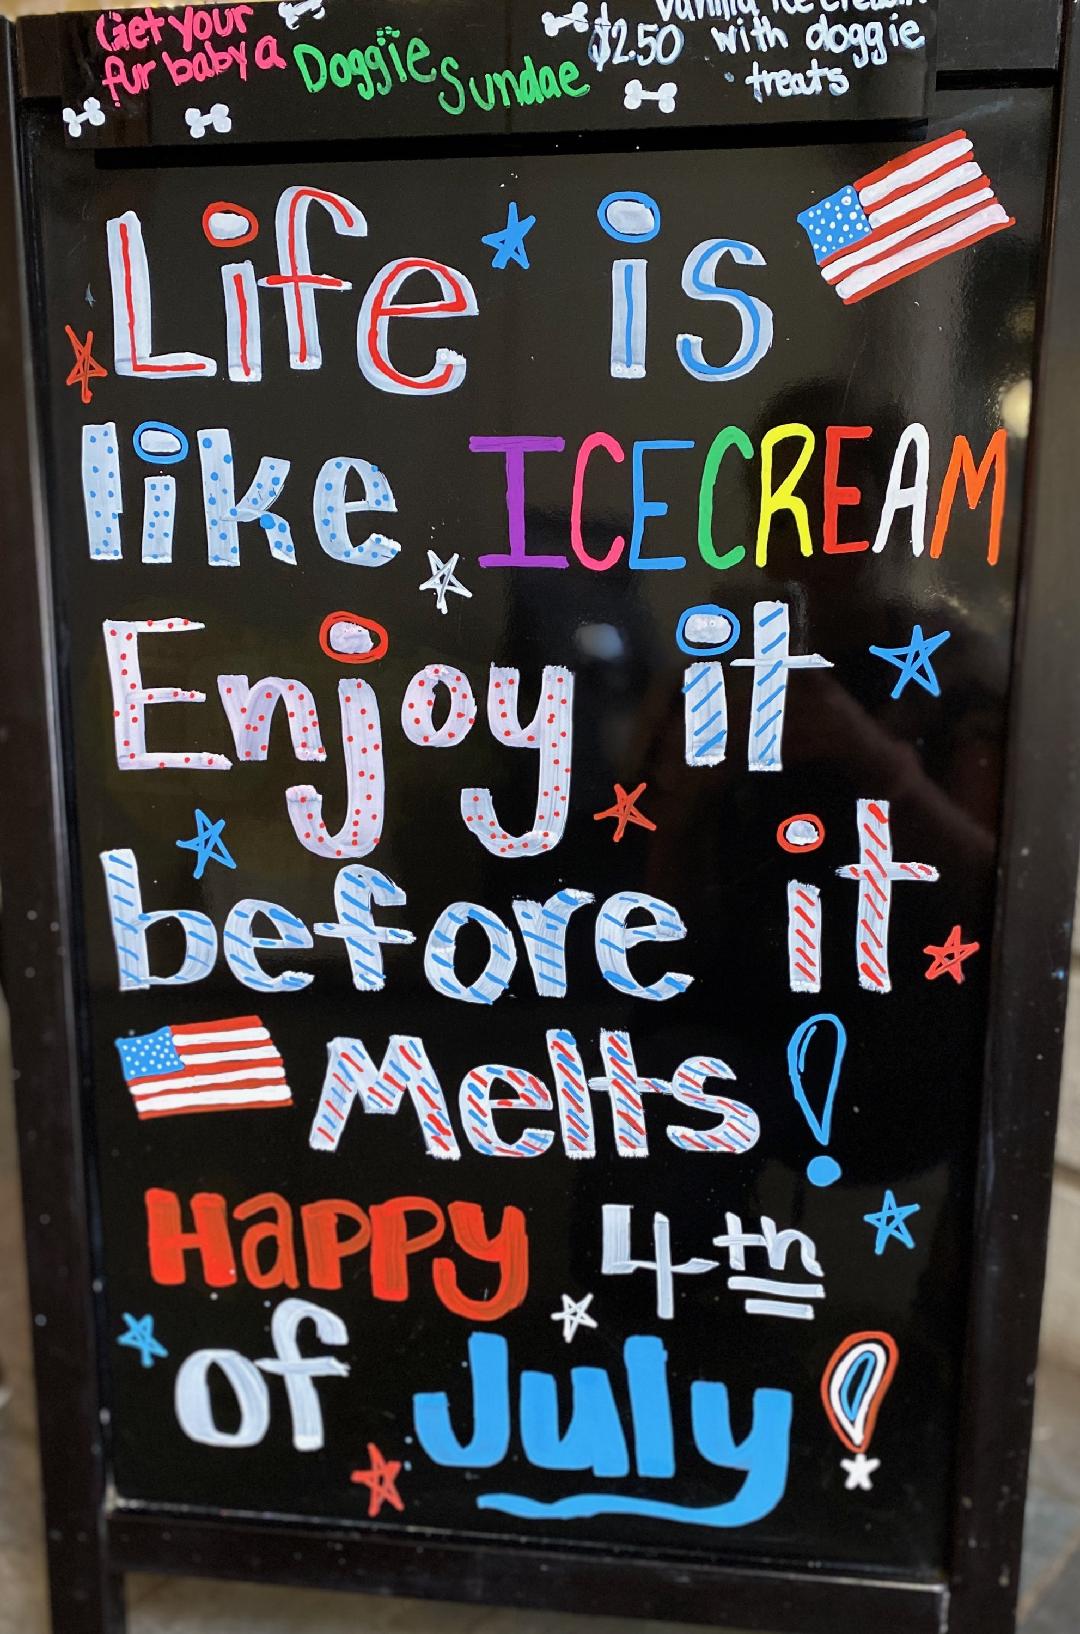 Get your
fur baby a
Doggie
Sundae
$2.50
vanilla ice cream
with doggie
treats
Life is
like ICECREAM
Enjoy it
before it
Melts!
Happy 4th
of July!